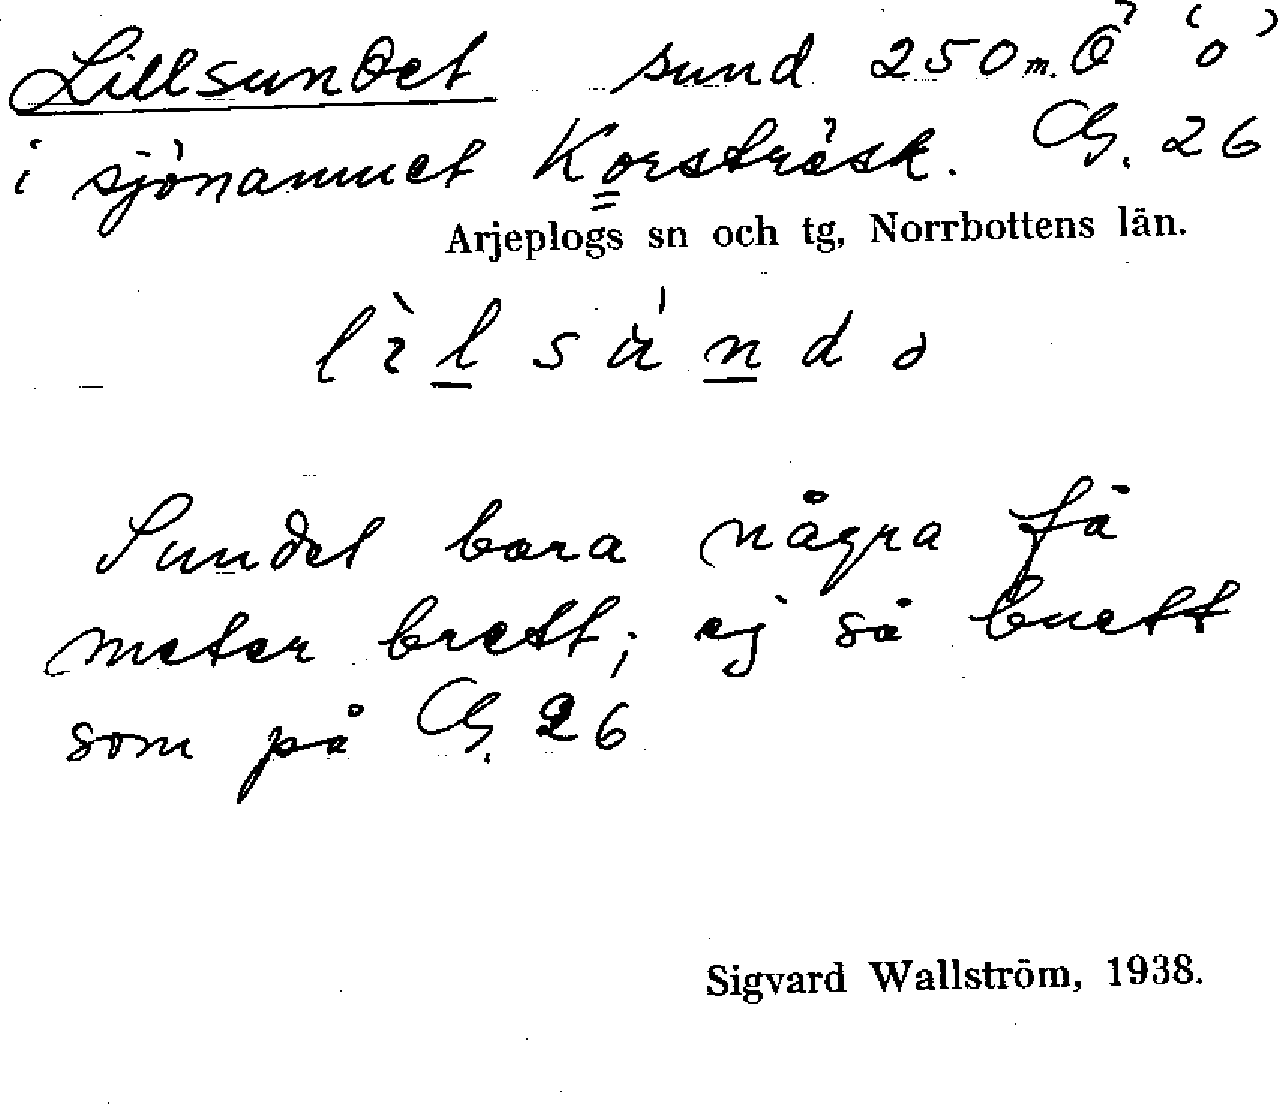 Lillsundet sund 250 m. Ö "o"
i sjönamnet Korsträsk. G. 26
Arjeplogs sn och tg, Norrbottens län.
Sundet bara några få
meter brett; ej så brett
som på G. 26
Sigvard Wallström, 1938.